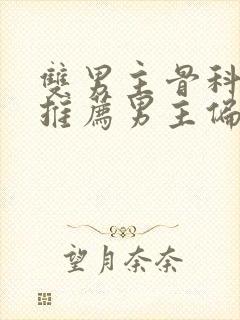 雙男主骨科
推薦男主偏
望月奈奈